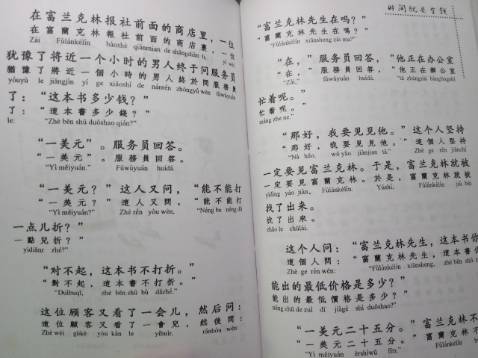 在富兰克林报社前面的商店里，一位
在富蘭克林報社前面的商店裏，一位
Zài Fùlánkèlín bàoshè qiánmian de shāngdiàn lǐ, yí wèi
犹豫了将近一个小时的男人终于问服务员
猶豫了將近一個小時的男人終於問服務員
yóuyù le jiāngjìn yí ge xiǎoshí de nánrén zhōngyú wèn fúwùyuán
了：“这本书多少钱？”
了：“這本書多少錢？”
le: “Zhè běn shū duōshao qián?”
“一美元”。服务员回答。
“一美元”。服務員回答。
“Yì měiyuán”. Fúwùyuán huídá.
“一美元？”这人又问，“能不能打
“一美元？”這人又問，“能不能打
“Yì měiyuán?” Zhè rén yòu wèn, “Néng bu néng dǎ
一点儿折？”
一點兒折？”
yìdiǎnr zhé?”
“对不起，这本书不打折。”
“對不起，這本書不打折。”
“Duìbuqǐ, zhè běn shū bù dǎzhé.”
这位顾客又看了一会儿，然后问：
這位顧客又看了一會兒，然後問：
Zhè wèi gùkè yòu kàn le yíhuìr, ránhòu wèn:
时间就是金钱
“富兰克林先生在吗？”
“富蘭克林先生在嗎？”
“Fùlánkèlín xiānsheng zài ma?”
“在，”服务员回答，“他正在办公室
“在，”服務員回答，“他正在辦公室
忙着呢。”
忙着呢。”
máng zhe ne.”
“那好，我要见见他。”这个人坚持
“那好，我要見見他。”這個人堅持
“Nà hǎo, wǒ yào jiànjian tā.” Zhè ge rén jiānchí
一定要见富兰克林。于是，富兰克林就被
一定要見富蘭克林。於是，富蘭克林就被
找了出来。
找了出來。
zhǎo le chūlái.
这个人问：“富兰克林先生，这本书你
這個人問：“富蘭克林先生，這本書你
Zhè ge rén wèn:
能出的最低价格是多少？”
能出的最低價格是多少？”
néng chū de zuì dī jiàgé shì duōshao?”
“一美元二十五分。”富兰克林不
“一美元二十五分。”富蘭克林不
“Yì měiyuán èrshíwǔ fēn.”